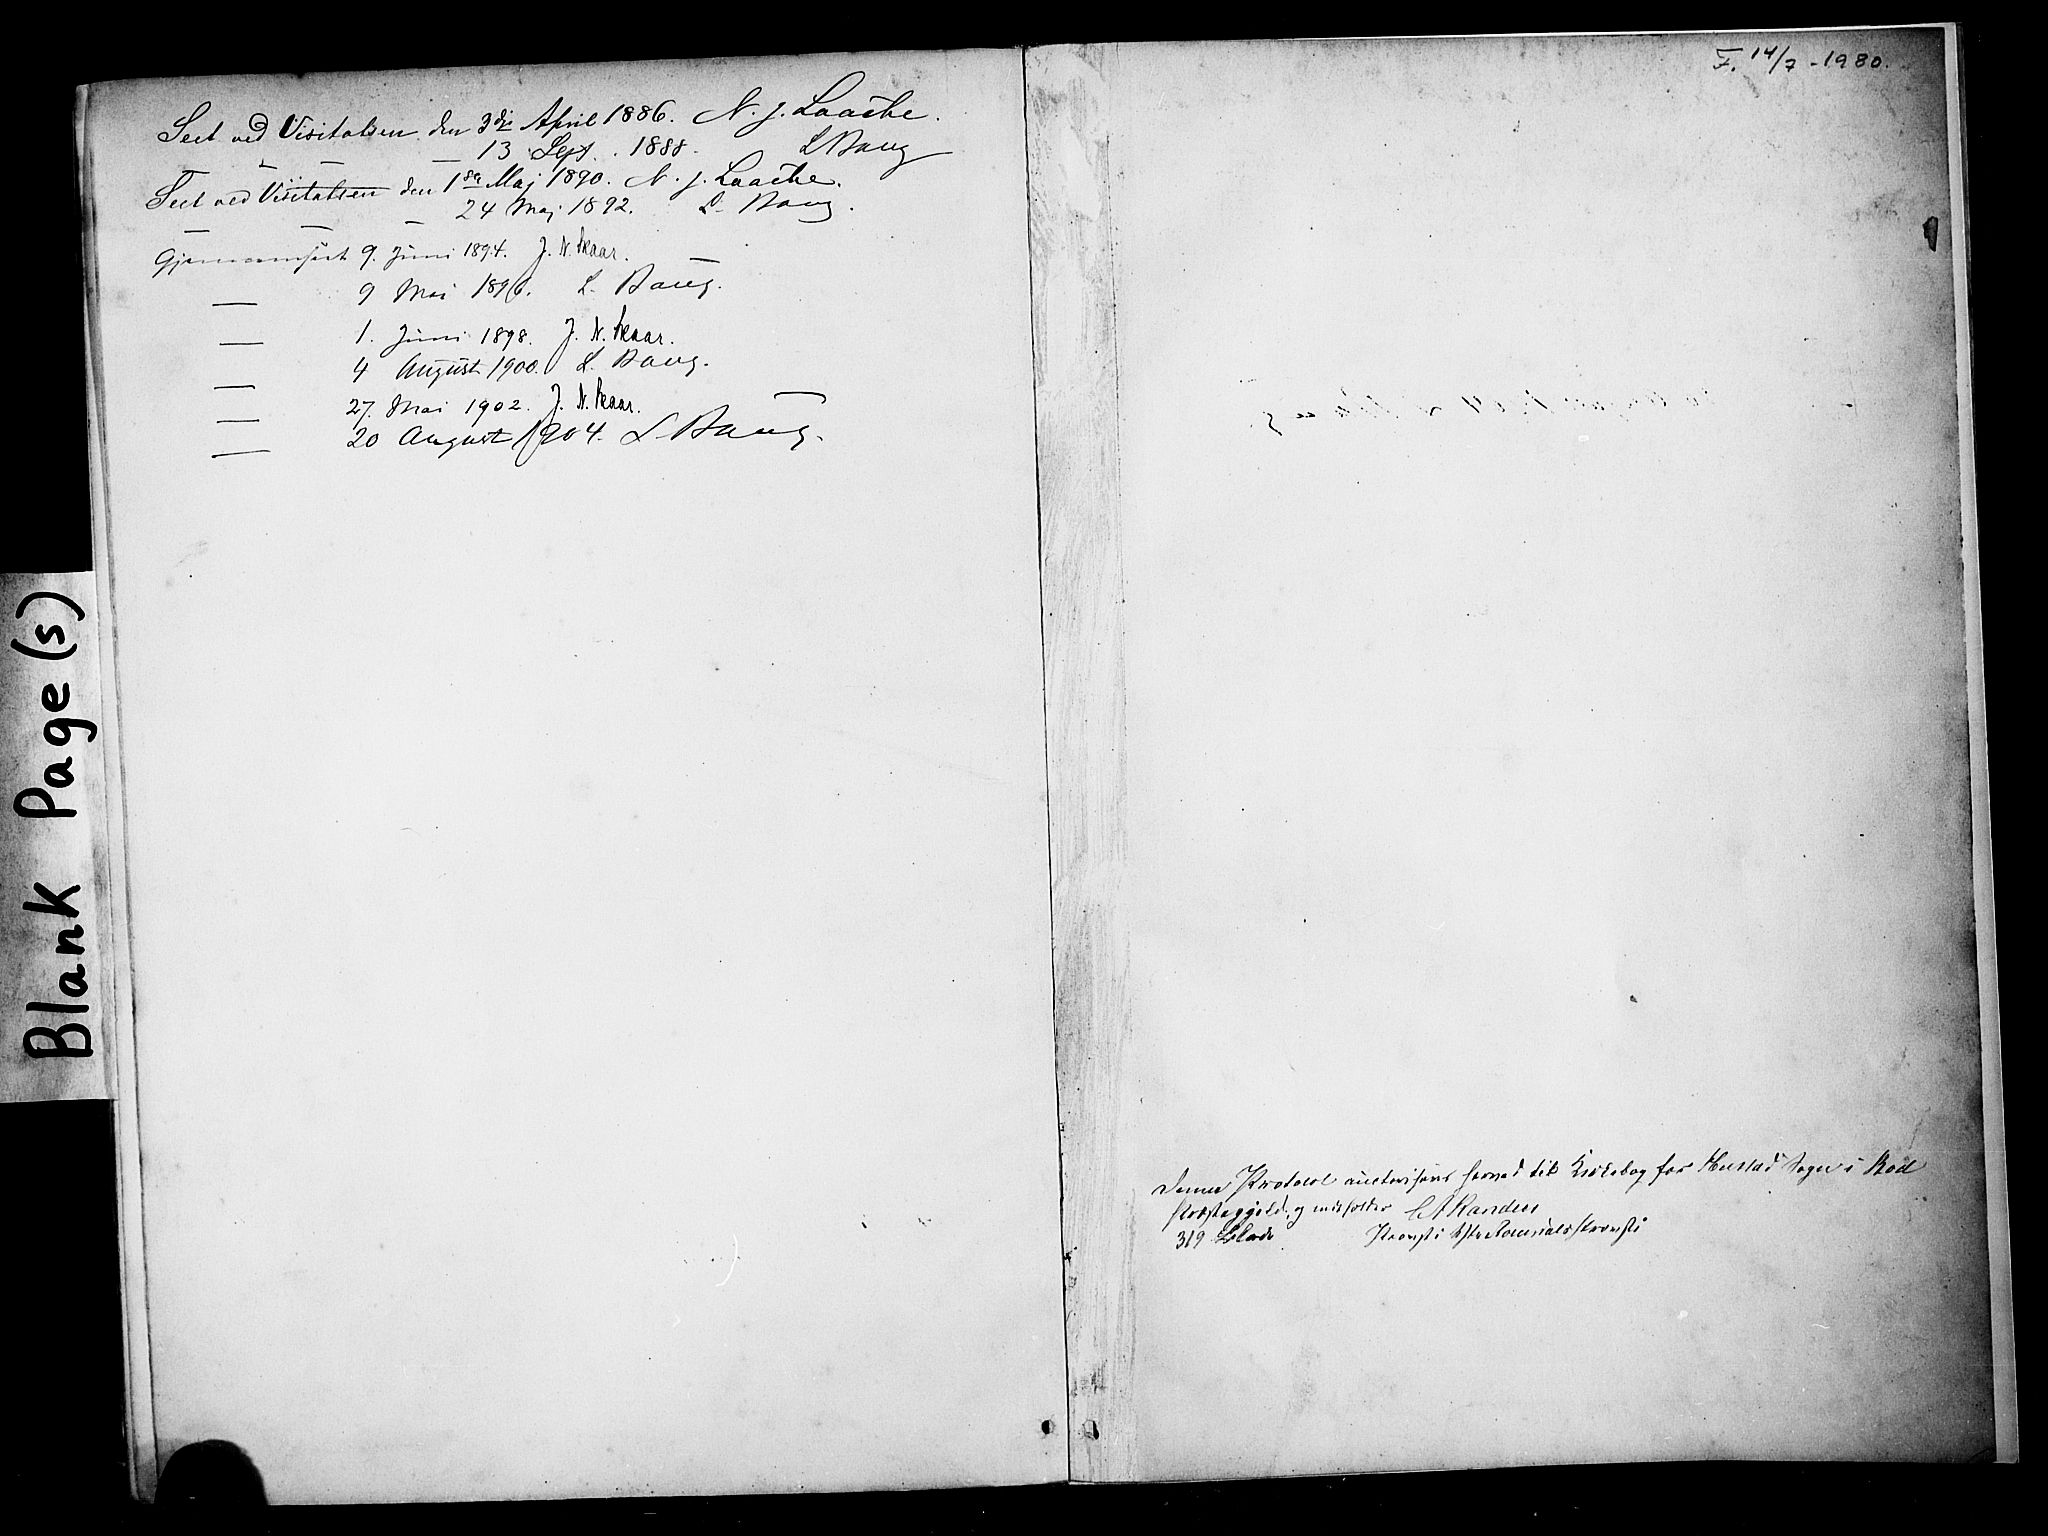 Seet ved Visitatsen den 3die April 1886. N. J. Laache.
— — — 13 Sept. 1888. L Baug
Seet ved Visitatsen den 1ste Maj 1890. N. J. Laache.
— — — 24 Maj 1892. L. Baug.
Gjennemseet 9. Juni 1894. J. N. Skaar.
— 9 Mai 1896. L. Baug.
— 1. Juni 1898. J. N. Skaar.
— 4 August 1900. L. Baug.
— 27. Mai 1902. J. N. Skaar.
— 20 August 1904. L. Baug.
Blank Page(s)
F. 14/7 - 1980.
Denne Protocol auctoriseres herved til Kirkebog for Hustad Sogn i Bod
Præstegjeld, og indeholder C A Randers
319 Blade Provst i Romsdals Provsti